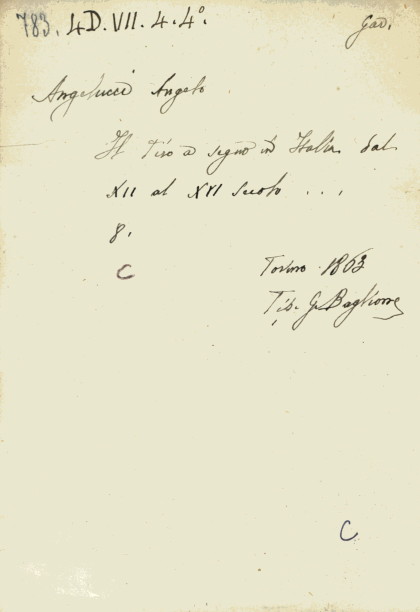 783. 4 D. VII. 4. 4º. Gao.
Angelucci Angelo
Il Tiro a segno in Italia dal
XII al XVI Secolo . . . .
8.
C
Torino 1863
Tip. G. Baglione
C